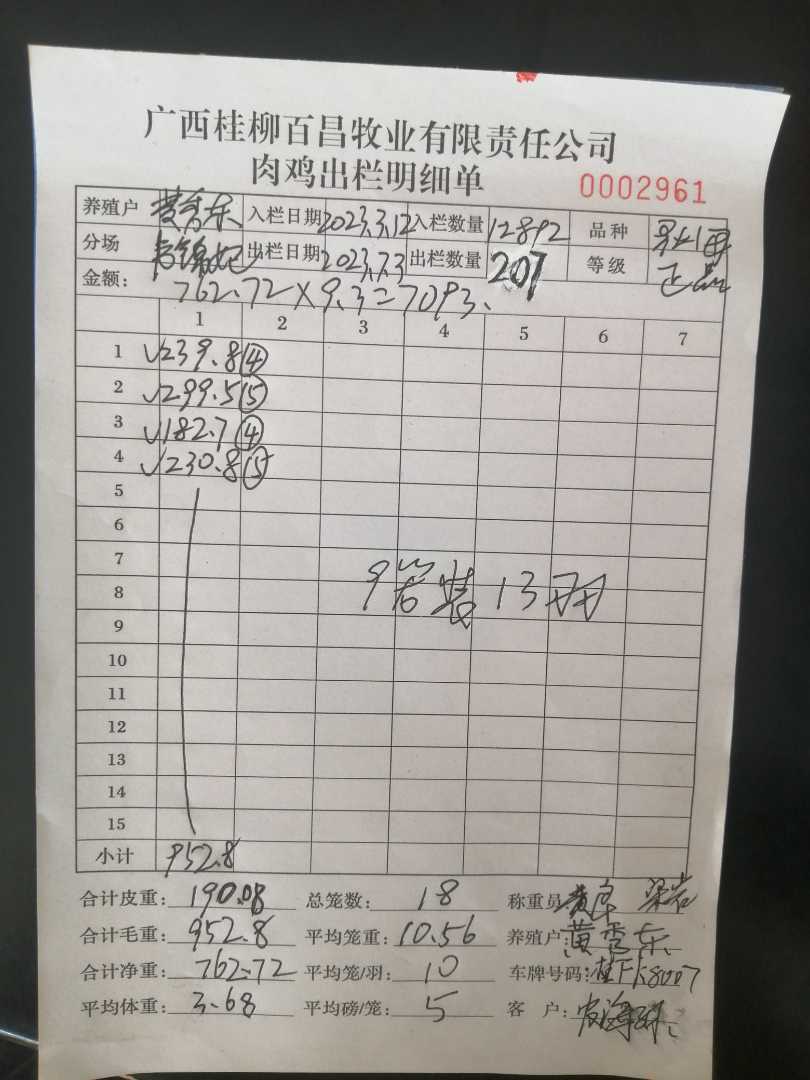 广西桂柳百昌牧业有限责任公司
肉鸡出栏明细单 0002961
养殖户 黄秀东 入栏日期 2023.3.12 入栏数量 12892 品种
分场 出栏日期 2023.7.3 出栏数量 207 等级 正品
金额: 762.72×9.3=7093.
1 2 3 4 5 6 7
1 √239.8④
2 √299.5⑤
3 √182.7④
4 √230.8⑤
5
6
7
8 9笼装13羽
9
10
11
12
13
14
15
小计 952.8
合计皮重: 190.08 总笼数: 18 称重员:
合计毛重: 952.8 平均笼重: 10.56 养殖户: 黄秀东
合计净重: 762.72 平均笼/羽: 10 车牌号码:
平均体重: 3.68 平均磅/笼: 5 客 户: